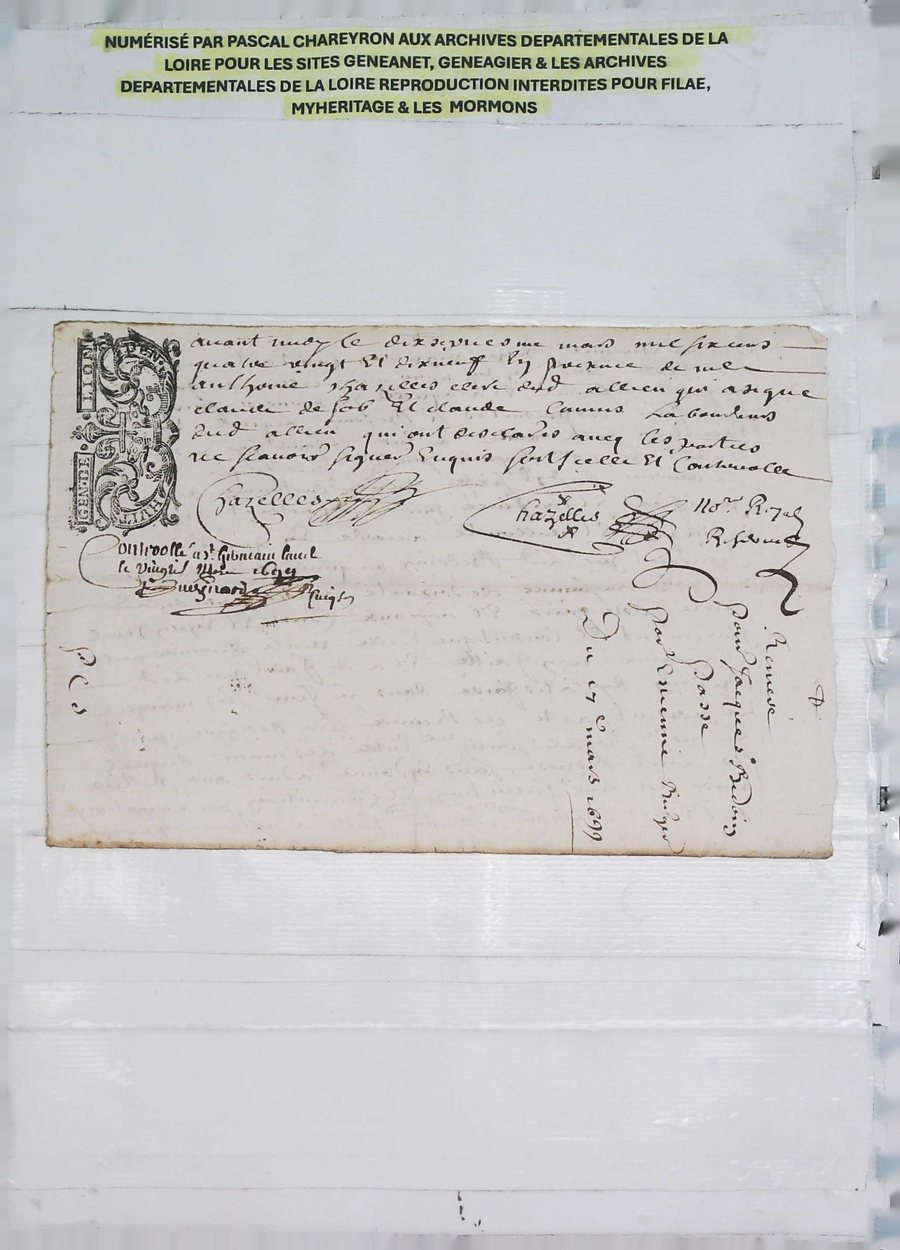 NUMÉRISÉ PAR PASCAL CHAREYRON AUX ARCHIVES DEPARTEMENTALES DE LA
LOIRE POUR LES SITES GENEANET, GENEAGIER & LES ARCHIVES
DEPARTEMENTALES DE LA LOIRE REPRODUCTION INTERDITES POUR FILAE,
MYHERITAGE & LES MORMONS
GEN.DE. LION
avant midy le dixseptiesme mars mil six cens
quatre vingt Et dixneuf En presence de
anthoine chazelles clerc dud allieu qui a signe
claude de Et claude Camus Laboureurs
dud allieu qui ont desclarés avec les parties
ne scavoir signer Enquis soit scellé Et Controollé
Chazelles
Chazelles
no.re Royal
Controollé a st Germain Laval
le vingtie Mars 1699
Remise
pour Jacques
passé
par Estienne
Du 17e mars 1699